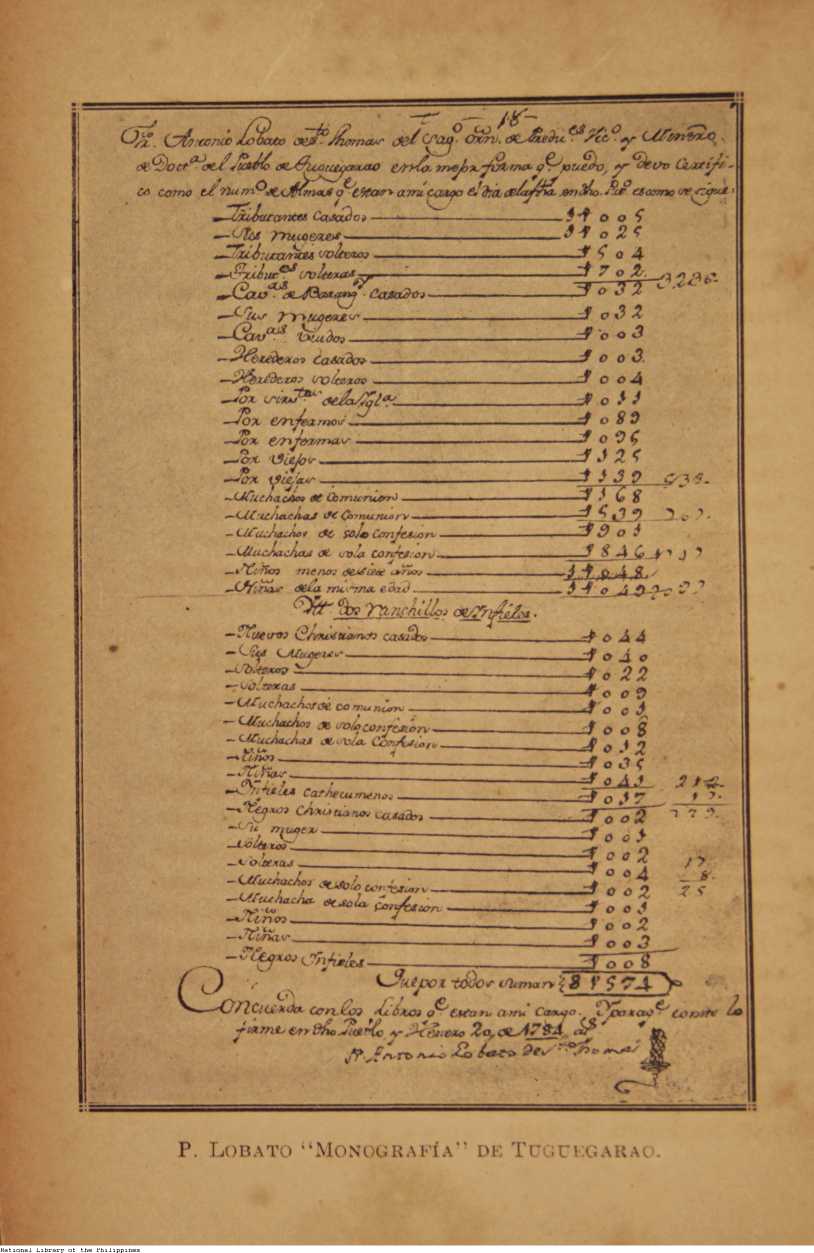 18
Fr. Antonio Lobato de Sto. Thomas del Sag.o Orn. de Predi.es Vic.o y Minro.
de Doct.a del Pueblo de Tuguegarao en la mejor forma q.e puedo, y devo Certifi-
co como el num.o de Almas q.e estan ami cargo el dia dela fha en dho. Pue.o es como se sigue.
Tributantes Casados 1 0 0 5
Sus mugeres 1 0 2 5
Tributantes solteros 5 0 4
Tribut.es solteras 7 0 2
Cav.as de Barang.y casados 0 3 2
Sus mugeres 0 3 2
Cav.as Viudos 0 0 3
Herederos casados 0 0 3
Herederos solteros 0 0 4
Por sirv.tes de la Igl.a 0 1 1
Por enfermos 0 8 9
Por enfermas 0 9 5
Por viejos 1 2 5
Por viejas 1 3 9
Muchachos de Comunion 1 6 8
Muchachas de Comunion 5 3 9
Muchachos de solo confesion 9 0 1
Muchachas de sola confesion 8 4 6
Niños menos de siete años 1 0 4 8
Niñas dela misma edad 1 0 4 9
Itt. dos Ranchillos de Infieles.
Nuevos Christianos casados 0 4 4
Sus Mugeres 0 4 0
Solteros 0 2 2
Solteras 0 0 9
Muchachos de comunion 0 0 1
Muchachos de solo confesion 0 0 8
Muchachas de sola Confesion 0 1 2
Niños 0 3 5
Niñas 0 4 1
Infieles cathecumenos 0 1 7
Negros Christianos casados 0 0 2
Su muger 0 0 1
Solteros 0 0 2
Solteras 0 0 4
Muchachos de solo confesion 0 0 2
Muchacha de sola confesion 0 0 1
Niños 0 0 2
Niñas 0 0 3
Negros Infieles 0 0 8
Que por todos suman 8 5 7 4
Concuerda con los Libros q.e estan ami cargo. Y para q.e conste lo
firme en dho Pueblo y Henero 20, de 1784 as
Fr. Antonio Lobato de Sto. Thomas
P. LOBATO “MONOGRAFÍA” DE TUGUEGARAO.
National Library of the Philippines